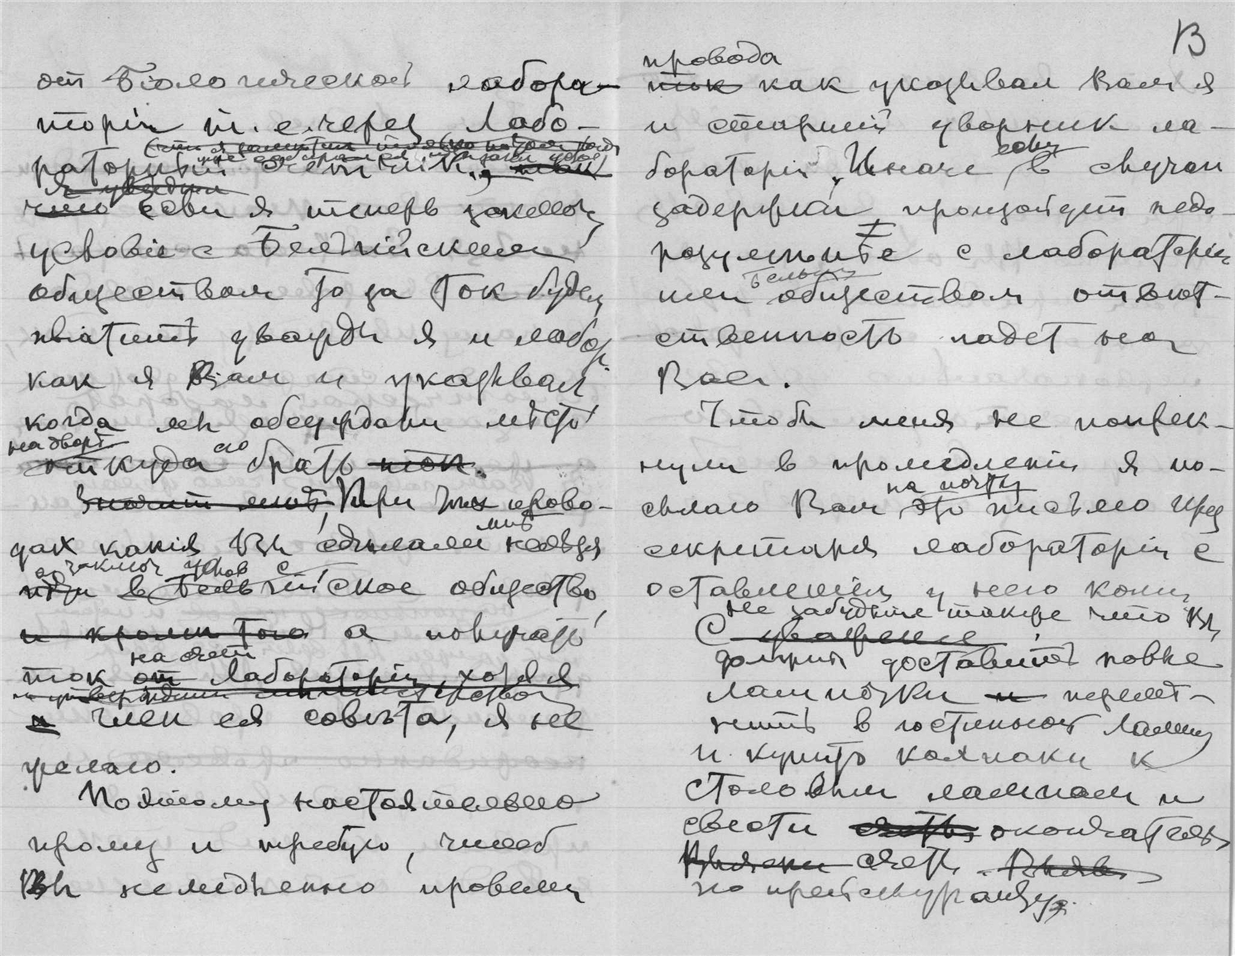 от Біологической лабора-
торіи т. е. через Лабо-
раторный счетчик,
что если я теперь заключу
условіе с Бельгійским
обществом то за ток будем
платить дважды я и лабор.
как я Вам и указывал
когда мы обсуждали мѣсто
на дворѣ
откуда его брать ток.
Значит мнѣ, При тѣх прово-
мнѣ
дах какія Вы сдѣлали нельзя
заключ услов с
в Бельгійское общество
и кромѣ того а получать
на счет
ток от Лабораторіи, хотя я
и член ея совѣта, я не
желаю.
Поэтому настоятельно
прошу и требую, чтоб
Вы немедленно провели
В
провода
ток как указывал Вам я
и старшій дворник ла-
бораторіи. Иначе, в случаи
задержки, произойдет недо-
разумѣніе с лабораторіи
Бельгій
или обществом отвѣт-
ственность падет на
Вас.
Чтобы меня не попрек-
нули в промедленіи я по-
на почту
сылаю Вам это письмо чрез
секретаря лабораторіи с
оставленіем у него копіи
Не забудьте также что Вы
С уваженіе
должны доставить новые
лампочки и перемѣ-
нить в гостинной лампу
и купить колпаки к
столовым лампам и
свести счеты окончательн
счет.
по прейскуранту.